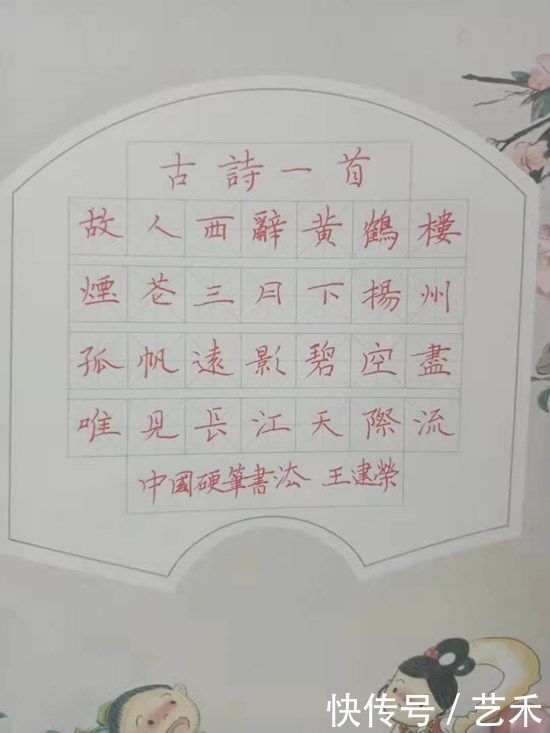 古詩一首
故人西辭黃鶴樓
煙花三月下揚州
孤帆遠影碧空盡
唯見長江天際流
中國硬筆書法 王建榮
快传号/艺禾